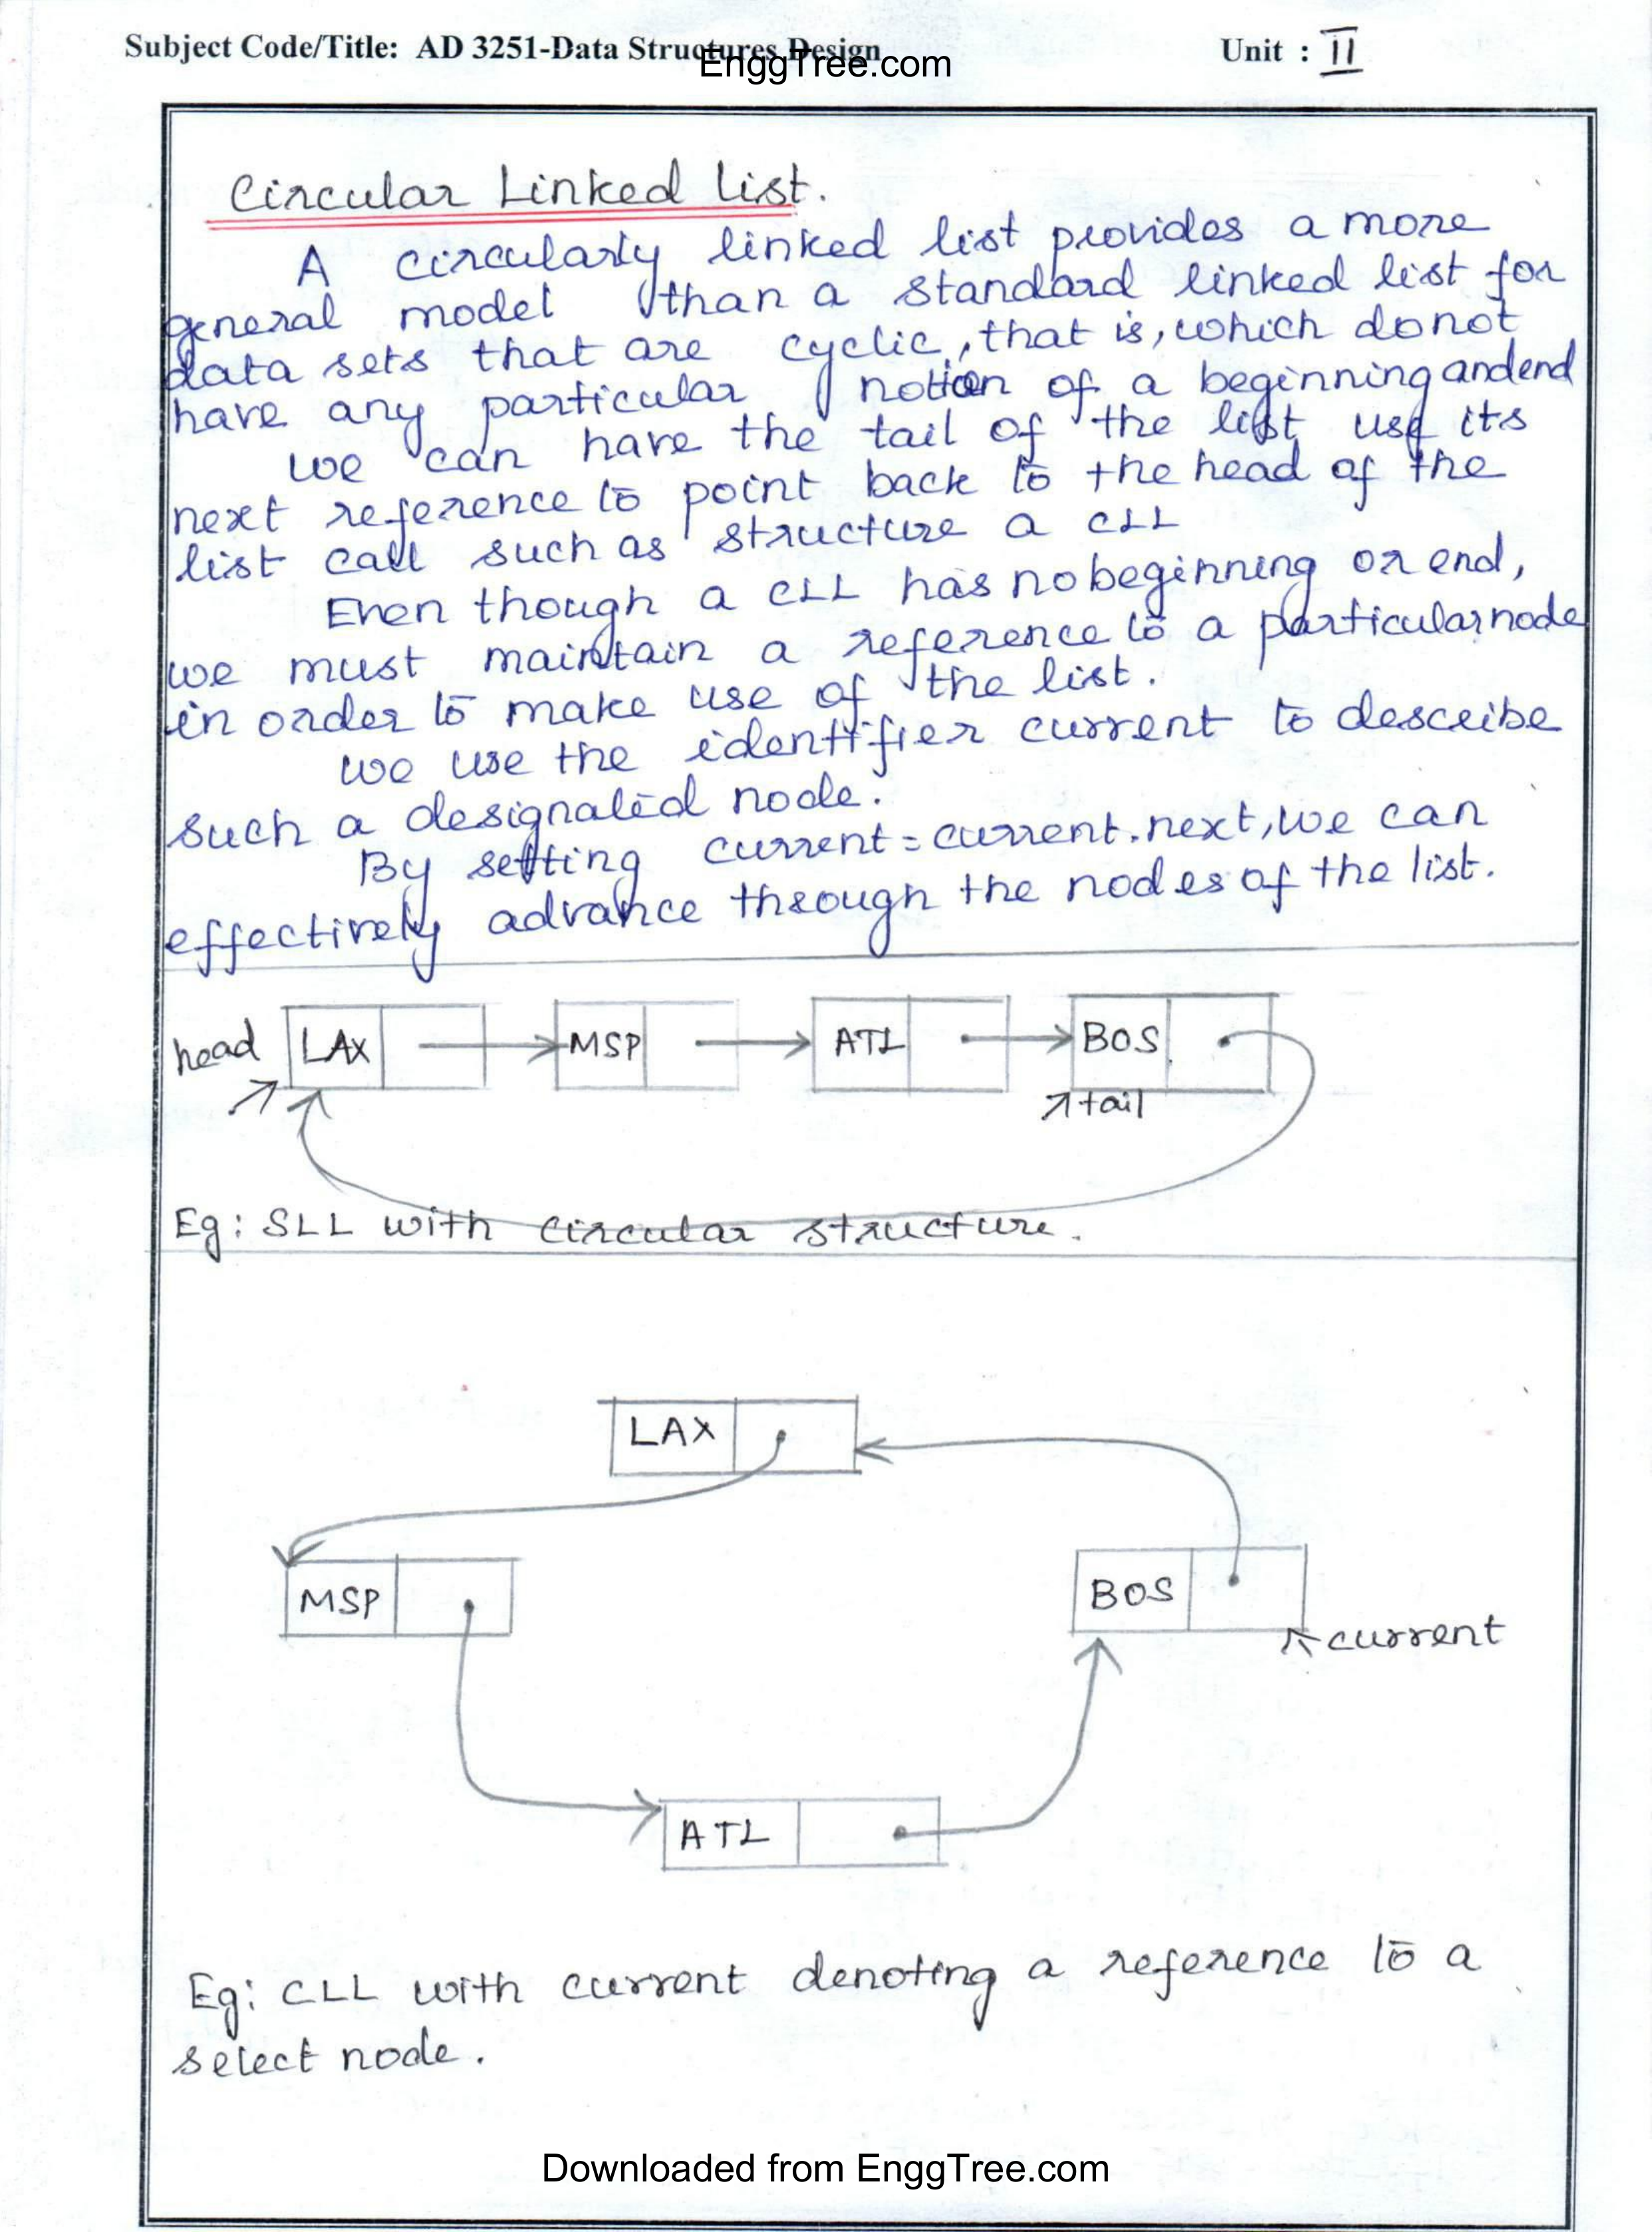 Subject Code/Title: AD 3251-Data Structures Design
EnggTree.com
Unit : II
Circular Linked List.
A circularly linked list provides a more
general model than a standard linked list for
data sets that are cyclic, that is, which do not
have any particular notion of a beginning and end
we can have the tail of the list use its
next reference to point back to the head of the
list call such as structure a CLL
Even though a CLL has no beginning or end,
we must maintain a reference to a particular node
in order to make use of the list.
we use the identifier current to describe
such a designated node.
By setting current = current.next, we can
effectively advance through the nodes of the list.
head LAX MSP ATL BOS
tail
Eg: SLL with circular structure.
LAX
MSP
BOS
current
ATL
Eg: CLL with current denoting a reference to a
select node.
Downloaded from EnggTree.com